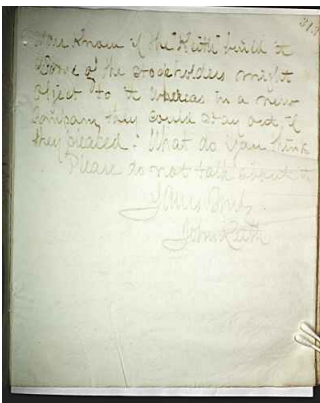 You Know if the "Keith" build it
Some of the stockholders might
object to it whereas in a new
Company they could stay out if
they pleased. What do you think
Please do not talk about it
Yours Truly
John Keith